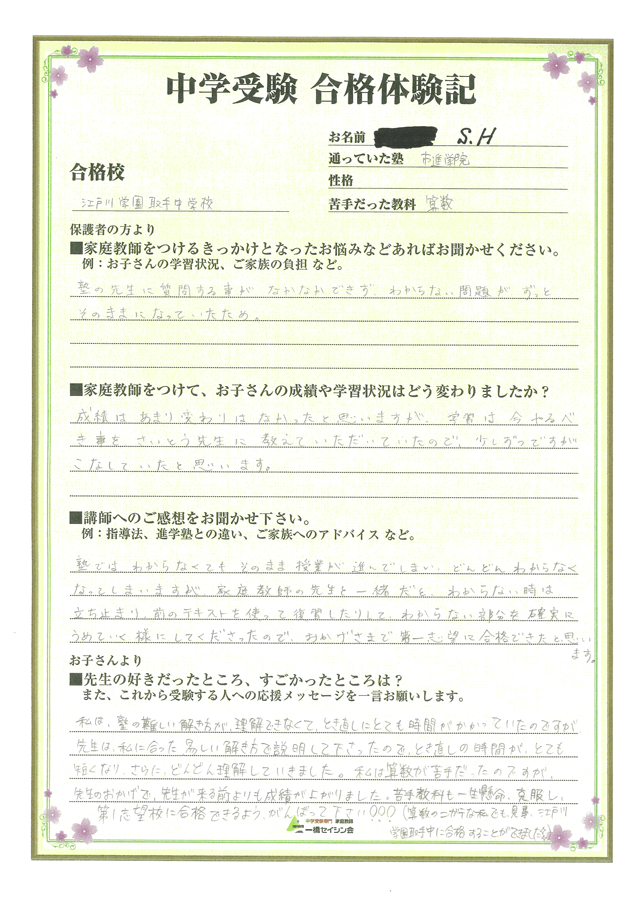 中学受験 合格体験記
お名前 S.H
通っていた塾 市進学院
合格校
性格
江戸川学園取手中学校
苦手だった教科 算数
保護者の方より
■家庭教師をつけるきっかけとなったお悩みなどあればお聞かせください。
例：お子さんの学習状況、ご家族の負担 など。
塾の先生に質問する事が なかなかできず、わからない問題が ずっと
そのままになっていたため。
■家庭教師をつけて、お子さんの成績や学習状況はどう変わりましたか？
成績は あまり変わりは なかったと思いますが、学習は 今やるべ
き事を さいとう先生に 教えていただいていたので、少しずつですが
こなしていたと思います。
■講師へのご感想をお聞かせ下さい。
例：指導法、進学塾との違い、ご家族へのアドバイス など。
塾では わからなくても そのまま 授業が 進んでしまい、どんどん わからなく
なってしまいますが、家庭教師の先生と一緒だと、わからない時は
立ち止まり、前のテキストを使って復習したりして、わからない部分を確実に
うめていく様にしてくださったので、おかげさまで第一志望に合格できたと思い
ます。
お子さんより
■先生の好きだったところ、すごかったところは？
また、これから受験する人への応援メッセージを一言お願いします。
私は、塾の難しい解き方が、理解できなくて、とき直しにとても時間がかかっていたのですが
先生は、私に合った易しい解き方で説明して下さったので、とき直しの時間が、とても
短くなり、さらに、どんどん理解していきました。私は算数が苦手だったのですが、
先生のおかげで、先生が来る前よりも成績が上がりました。苦手教科も一生懸命、克服し、
第1志望校に合格できるよう、がんばって下さい○○○(算数のニガテな私でも、見事、江戸川
学園取手中に合格することができました!)
中学受験専門 家庭教師
一橋セイシン会